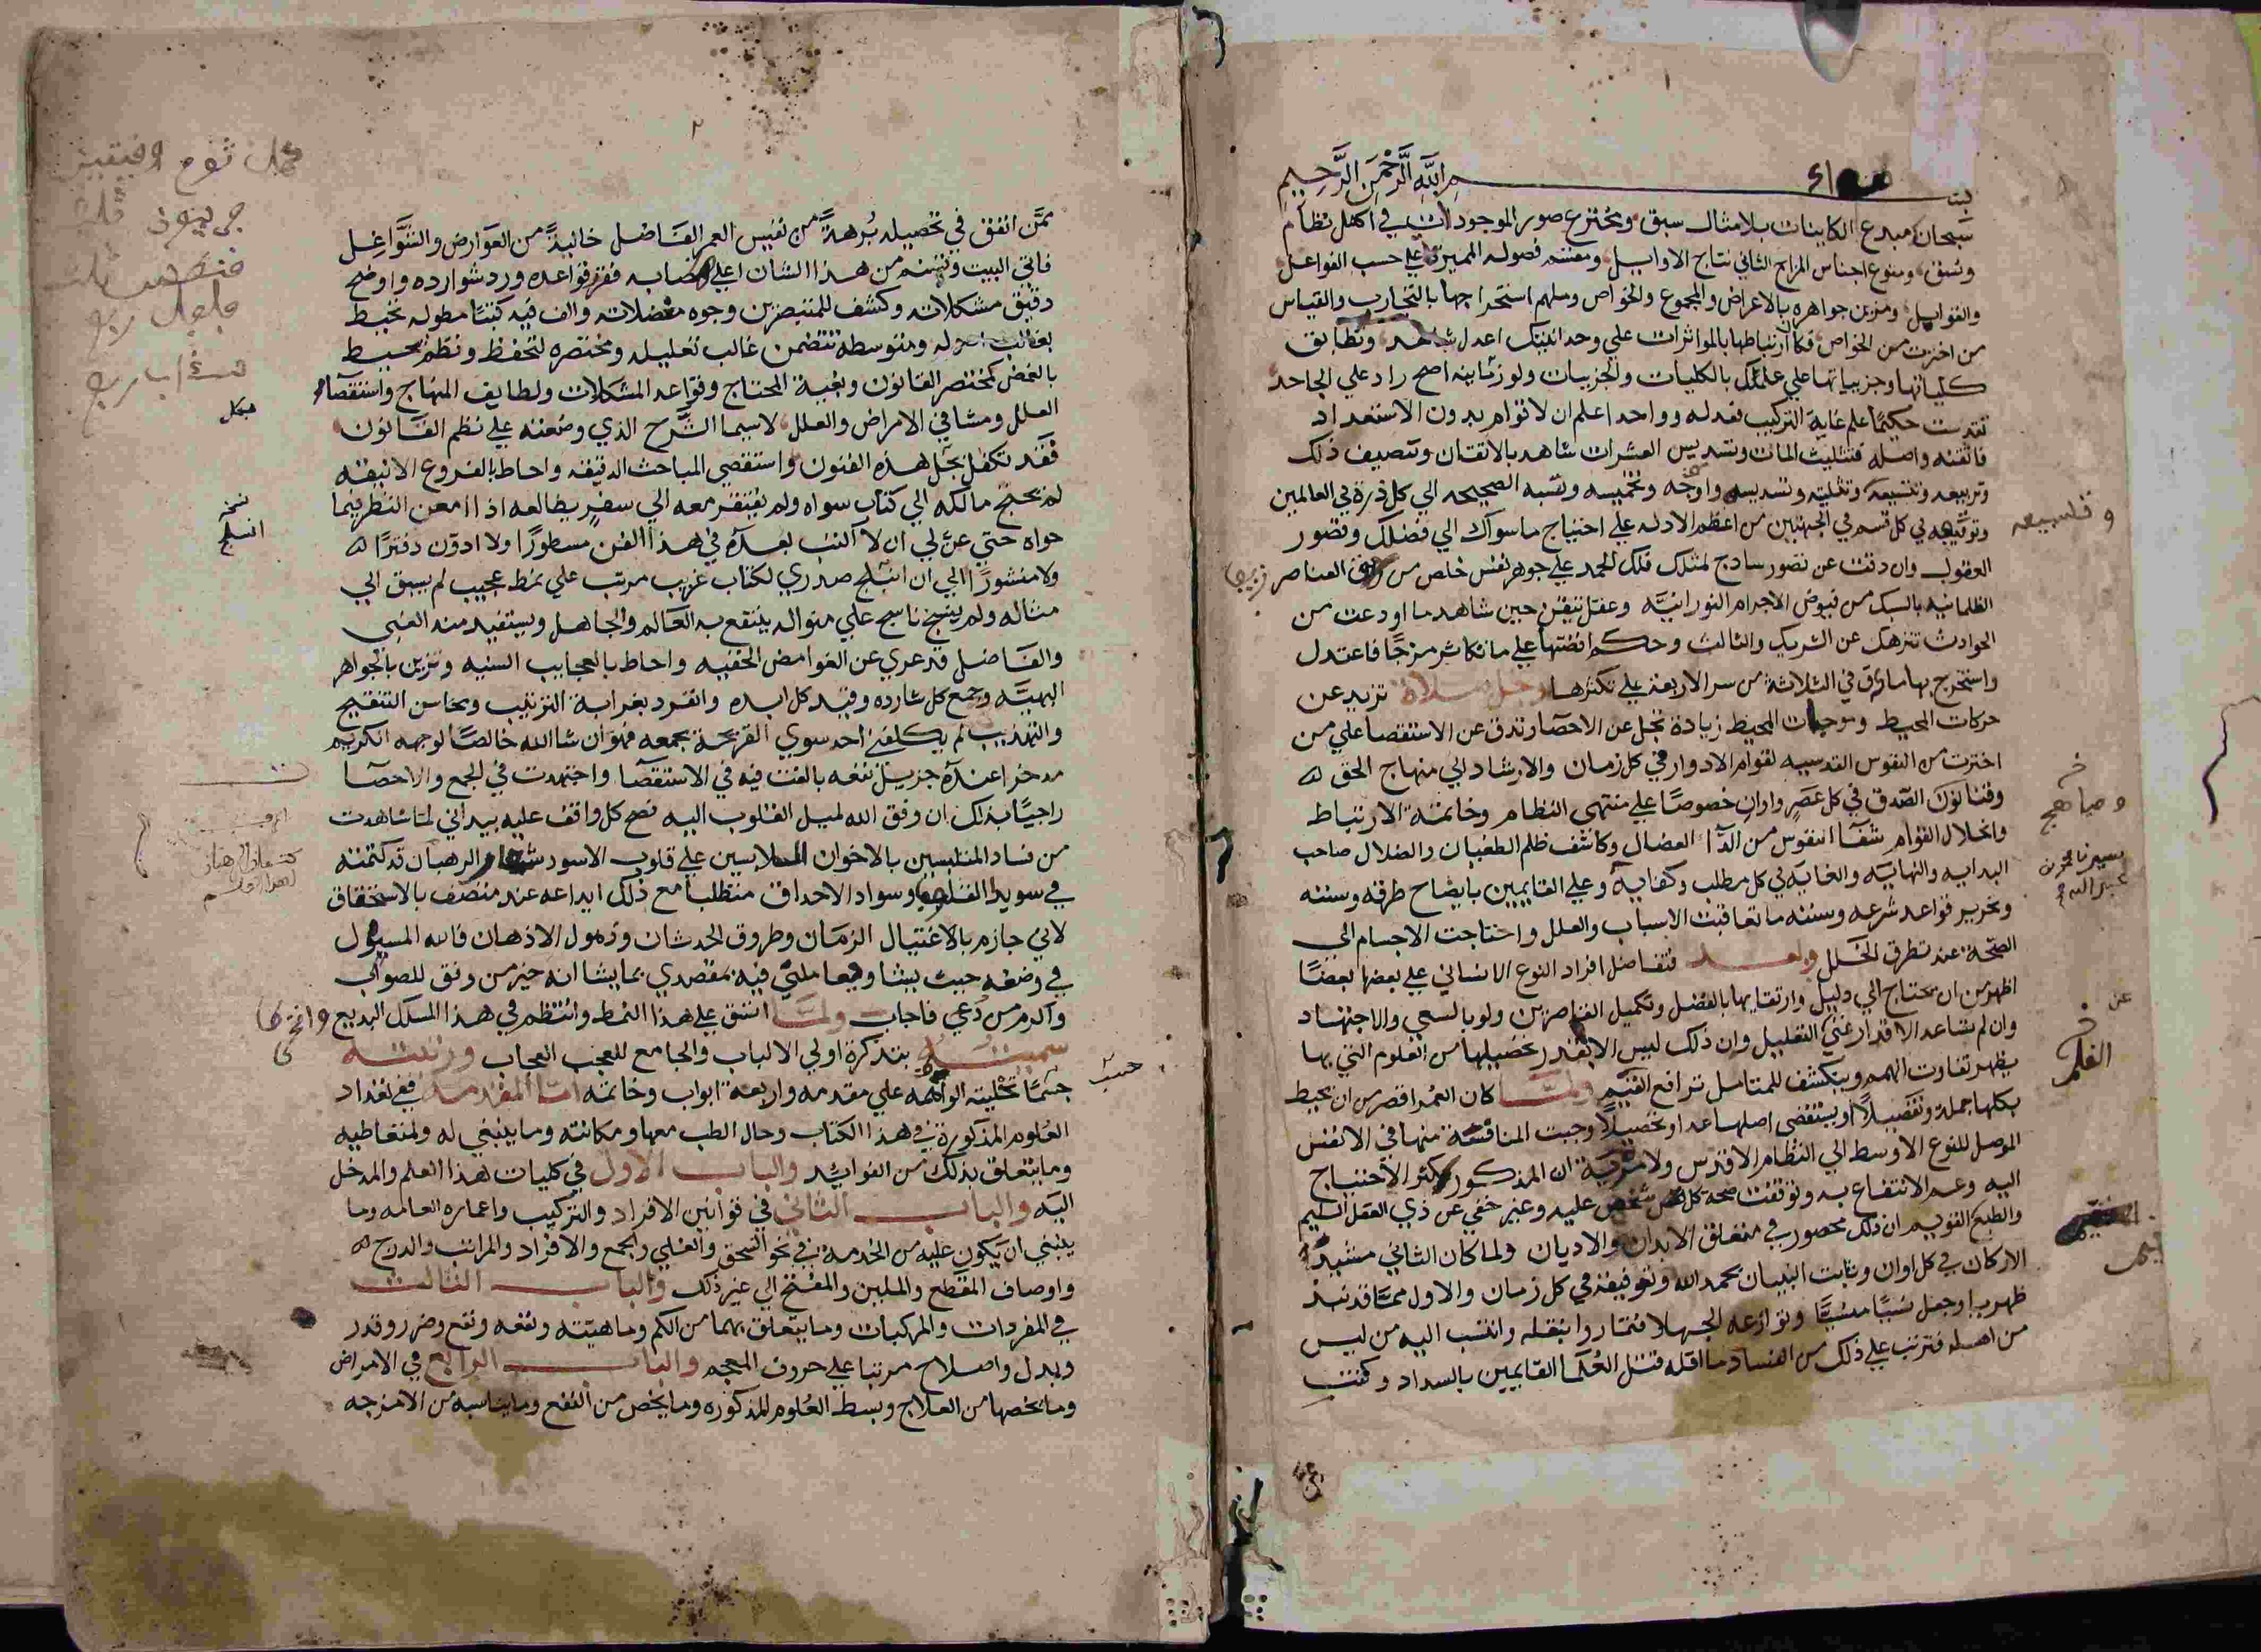 بسم الله الرحمن الرحيم
سبحان مبدع الكاينات بلا مثال سبق ومخترع صور الموجودات في اكمل نظام
ونسق ومنوع اجناس المزاج الثاني نتاج الاوايل ومقسم فصوله المميزة علي حسب الفواعل
والقوابل ومزين جواهره بالاعراض والمجموع والخواص وملهم استخراجها بالتجارب والقياس
من اخترت من الخواص فكان ارتباطها بالموثرات علي وحدانيتك اعدل شاهد وتطابق
كلياتها وجزيياتها علي علمك بالكليات والجزييات ولو زمانيه اصح راد علي الجاحد
تقدست حكيما علم غاية التركيب فعدله وواحد اعلم ان لا قوام بدون الاستعداد
فاتقنه واصله فتثليث المات وتسديس العشرات شاهد بالاتقان وتنصيف ذلك
وتربيعه وتتسيعه وتثليثه وتسديسه واوجه وتخميسه ونسبه الصحيحه الي كل ذرة في العالمين
وتوقيعه في كل قسم في الجهتين من اعظم الادله علي احتياج ما سواك الي فضلك وقصور
العقول وان دقت عن تصور ساذج لمثلك فلك الحمد علي جوهر نفس خلص من العناصر
الظلمانيه بالسبك من فيوض الاجرام النورانيه وعقل تيقن حين شاهد ما اودعت من
الحوادث تنزهك عن الشريك والثالث وحكم افضتها علي ما تكاثر مزجا فاعتدل
واستخرج بها ما دق في الثلاثة من سر الاربعة علي تكثرها وجل صلاة تزيد عن
حركات المحيط وموجات المحيط زيادة تجل عن الاحصا وتدق عن الاستقصا علي من
اخترت من النفوس القدسيه لقوام الادوار في كل زمان والارشاد الي منهاج الحق
وقانون الصدق في كل عصر واوان خصوصا علي منتهي النظام وخاتمة الارتباط
وانحلال القوام شفا النفوس من الدآ العضال وكاشف ظلم الطغيان والضلال صاحب
البدايه والنهايه والغايه في كل مطلب وكفايه وعلي القايمين بايضاح طرقه وسننه
وتحرير قواعد شرعه وسننه ما تعاقبت الاسباب والعلل واحتاجت الاجسام الي
الصحة عند تطرق الخلل وبعد فتفاضل افراد النوع الانساني علي بعضها بعضا
اظهر من ان يحتاج الي دليل وارتقايها بالفضل وتكميل القاصرين ولو بالسعي والاجتهاد
وان لم تساعد الاقدار غني التقليل وان ذلك ليس الا بقدر تحصيلها من العلوم التي بها
يظهر تفاوت الهمم وينكشف للمتامل ترافع القيم ولما كان العمر اقصر من ان يحيط
بكلها جملة وتفصيلا او يستقصي اصلها عدا وتحصيلا وجبت المنافسة منها في الانفس
الموصل للنوع الاوسط الي النظام الاقدس ولا مرية ان المذكور كثر الاحتياج
اليه وعم الانتفاع به وتوقفت صحه كل شخص عليه وغير خفي عن ذي العقل السليم
والطبع القويم ان ذلك محصور في متعلق الابدان والاديان ولما كان الثاني مشيد
الاركان في كل اوان وثابت البنيان بحمد الله وتوفيقه في كل زمان والاول مما قد نبذ
ظهريا وجعل نسيا منسيا وتوازعه الجهلا فتماروا بنقله وانتسب اليه من ليس
من اهله فترتب علي ذلك من الفساد ما اقله قتل العلما القايمين بالسداد وكنت
وتسبيعه
ومناهج
عن
القلم
٢
ممن انفق في تحصيله برهة من نفيس العمر الفاضل خالية من العوارض والشواغل
فاتي البيت وتسنم من هذا الشان اعلي هضابه فقرر قواعده ورد شوارده واوضح
دقيق مشكلاته وكشف للمتبصرين وجوه معضلاته والف فيه كتبا مطوله تحيط
بغالب اصوله ومتوسطه تتضمن غالب تعليله ومختصره لتحفظ ونظم يحيط
بالغمض كمختصر القانون وبغية المحتاج وقواعد المشكلات ولطايف المنهاج واستقصا
العلل ومشافي الامراض والعلل لاسيما الشرح الذي وضعته علي نظم القانون
فقد تكفل بجل هذه الفنون واستقصي المباحث الدقيقه واحاط بالفروع الانيقه
لم يحتج مالكه الي كتاب سواه ولم يفتقر معه الي سفر يطالعه اذا امعن النظر فيما
حواه حتي عن لي ان لا اكتب بعده في هذا الفن مسطورا ولا ادون دفترا
ولا منشورا الي ان انبلج صدري لكتاب غريب مرتب علي نمط عجيب لم يسبق الي
مثاله ولم ينسج ناسج علي منواله ينتفع به العالم والجاهل ويستفيد منه الغبي
والفاضل قد عري عن الغوامض الخفيه واحاط بالعجايب السنيه وتزين بالجواهر
البهيه وجمع كل شارده وقيد كل ابده وانفرد بغرابة الترتيب ومحاسن التنقيح
والتهذيب لم يكلفني احد سوي القريحة بجمعه فهو ان شا الله خالصا لوجهه الكريم
مدخر اعنده جزيل نفعه بالغت فيه في الاستقصا واجتهدت في الجمع والاحصا
راجيا بذلك ان وفق الله لميل القلوب اليه نصح كل واقف عليه بيد اني لما شاهدت
من فساد المتلبسين بالاخوان اللابسين علي قلوب الاسود شعار الرهبان قد كتمته
في سويدا القلب وسواد الاحداق متطلبا مع ذلك ايداعه عند متصف بالاستحقاق
لاني جازم بالاغتيال الزمان وطروق الحدثان وذهول الاذهان فالله المسيول
في وضعه حيث يشا ومعاملتي فيه بمقصدي بما يشا انه خير من وفق للصواب
واكرم من دعي فاجاب ولما انتسق علي هذا النمط وانتظم في هذا المسلك البديع وانخرط
سميته بتذكرة اولي الالباب والجامع للعجب العجاب ورتبته
حسبما تخليته الواهمه علي مقدمه واربعة ابواب وخاتمه اما المقدمه ففي تعداد
العلوم المذكورة في هذا الكتاب وحال الطب معها ومكانته وما ينبغي له ولمتعاطيه
وما يتعلق بذلك من الفوايد والباب الاول في كليات هذا العلم والمدخل
اليه والباب الثاني في قوانين الافراد والتركيب واعماره العامه وما
ينبغي ان يكون عليه من الخدمة في نحو السحق والغلي والجمع والافراد والمراتب والدرج
واوصاف المقطع والملين والمفتح الي غير ذلك والباب الثالث
في المفردات والمركبات وما يتعلق بهما من الكم وماهيته ونفعه ونفع وضرر وقدر
وبدل واصلاح مرتبا علي حروف المعجم والباب الرابع في الامراض
وما يخصها من العلاج وبسط العلوم المذكوره وما يخص من النفع وما يناسبه من الامزجه
نسخه
انبلج